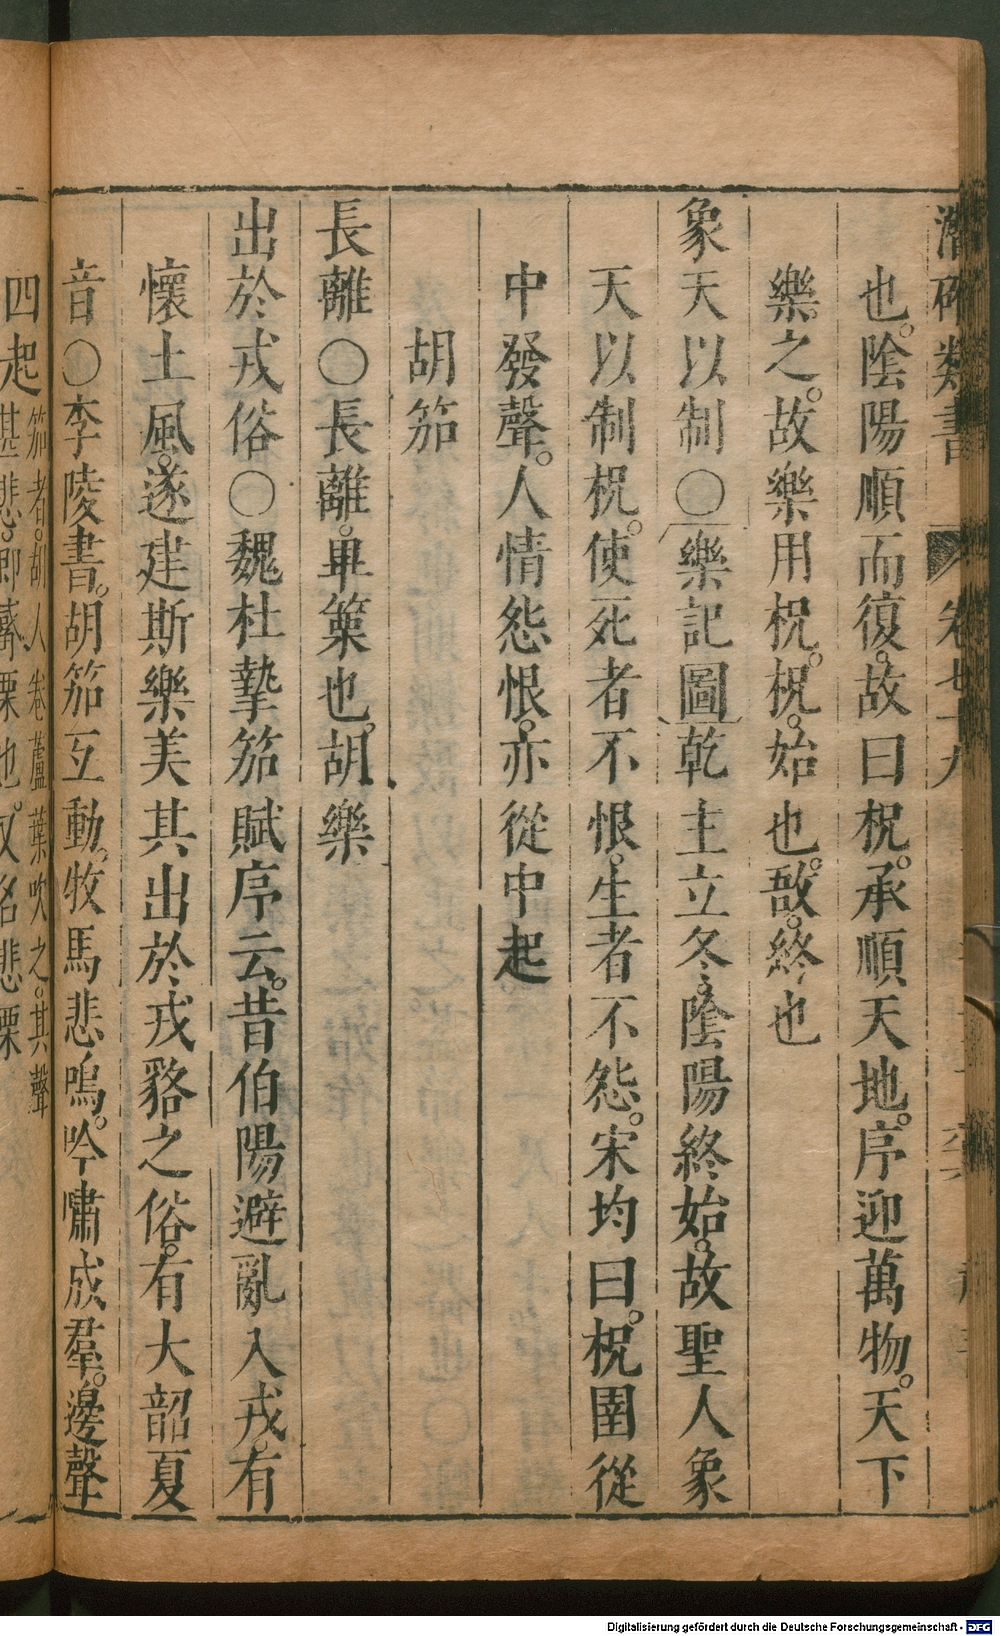 潛確類書 卷七十九
也陰陽順而復故曰柷承順天地序迎萬物天下
樂之故樂用柷柷始也敔終也
象天以制○樂記圖乾主立冬陰陽終始故聖人象
天以制柷使死者不恨生者不怨宋均曰柷圉從
中發聲人情怨恨亦從中起
胡笳
長離○長離畢篥也胡樂
出於戎俗○魏杜摯笳賦序云昔伯陽避亂入戎有
懷土風遂建斯樂美其出於戎貉之俗有大韶夏
音○李陵書胡笳互動牧馬悲鳴吟嘯成羣邊聲
四起笳者胡人卷蘆葉吹之其聲
甚悲即觱栗也又名悲栗
Digitalisierung gefördert durch die Deutsche Forschungsgemeinschaft - DFG